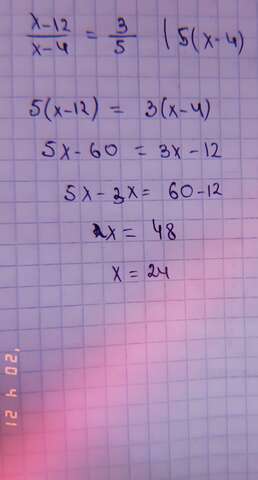 x-12/x-4 = 3/5 | 5(x-4)
5(x-12) = 3(x-4)
5x-60 = 3x-12
5x-3x= 60-12
2x= 48
x=24
'20 4 21